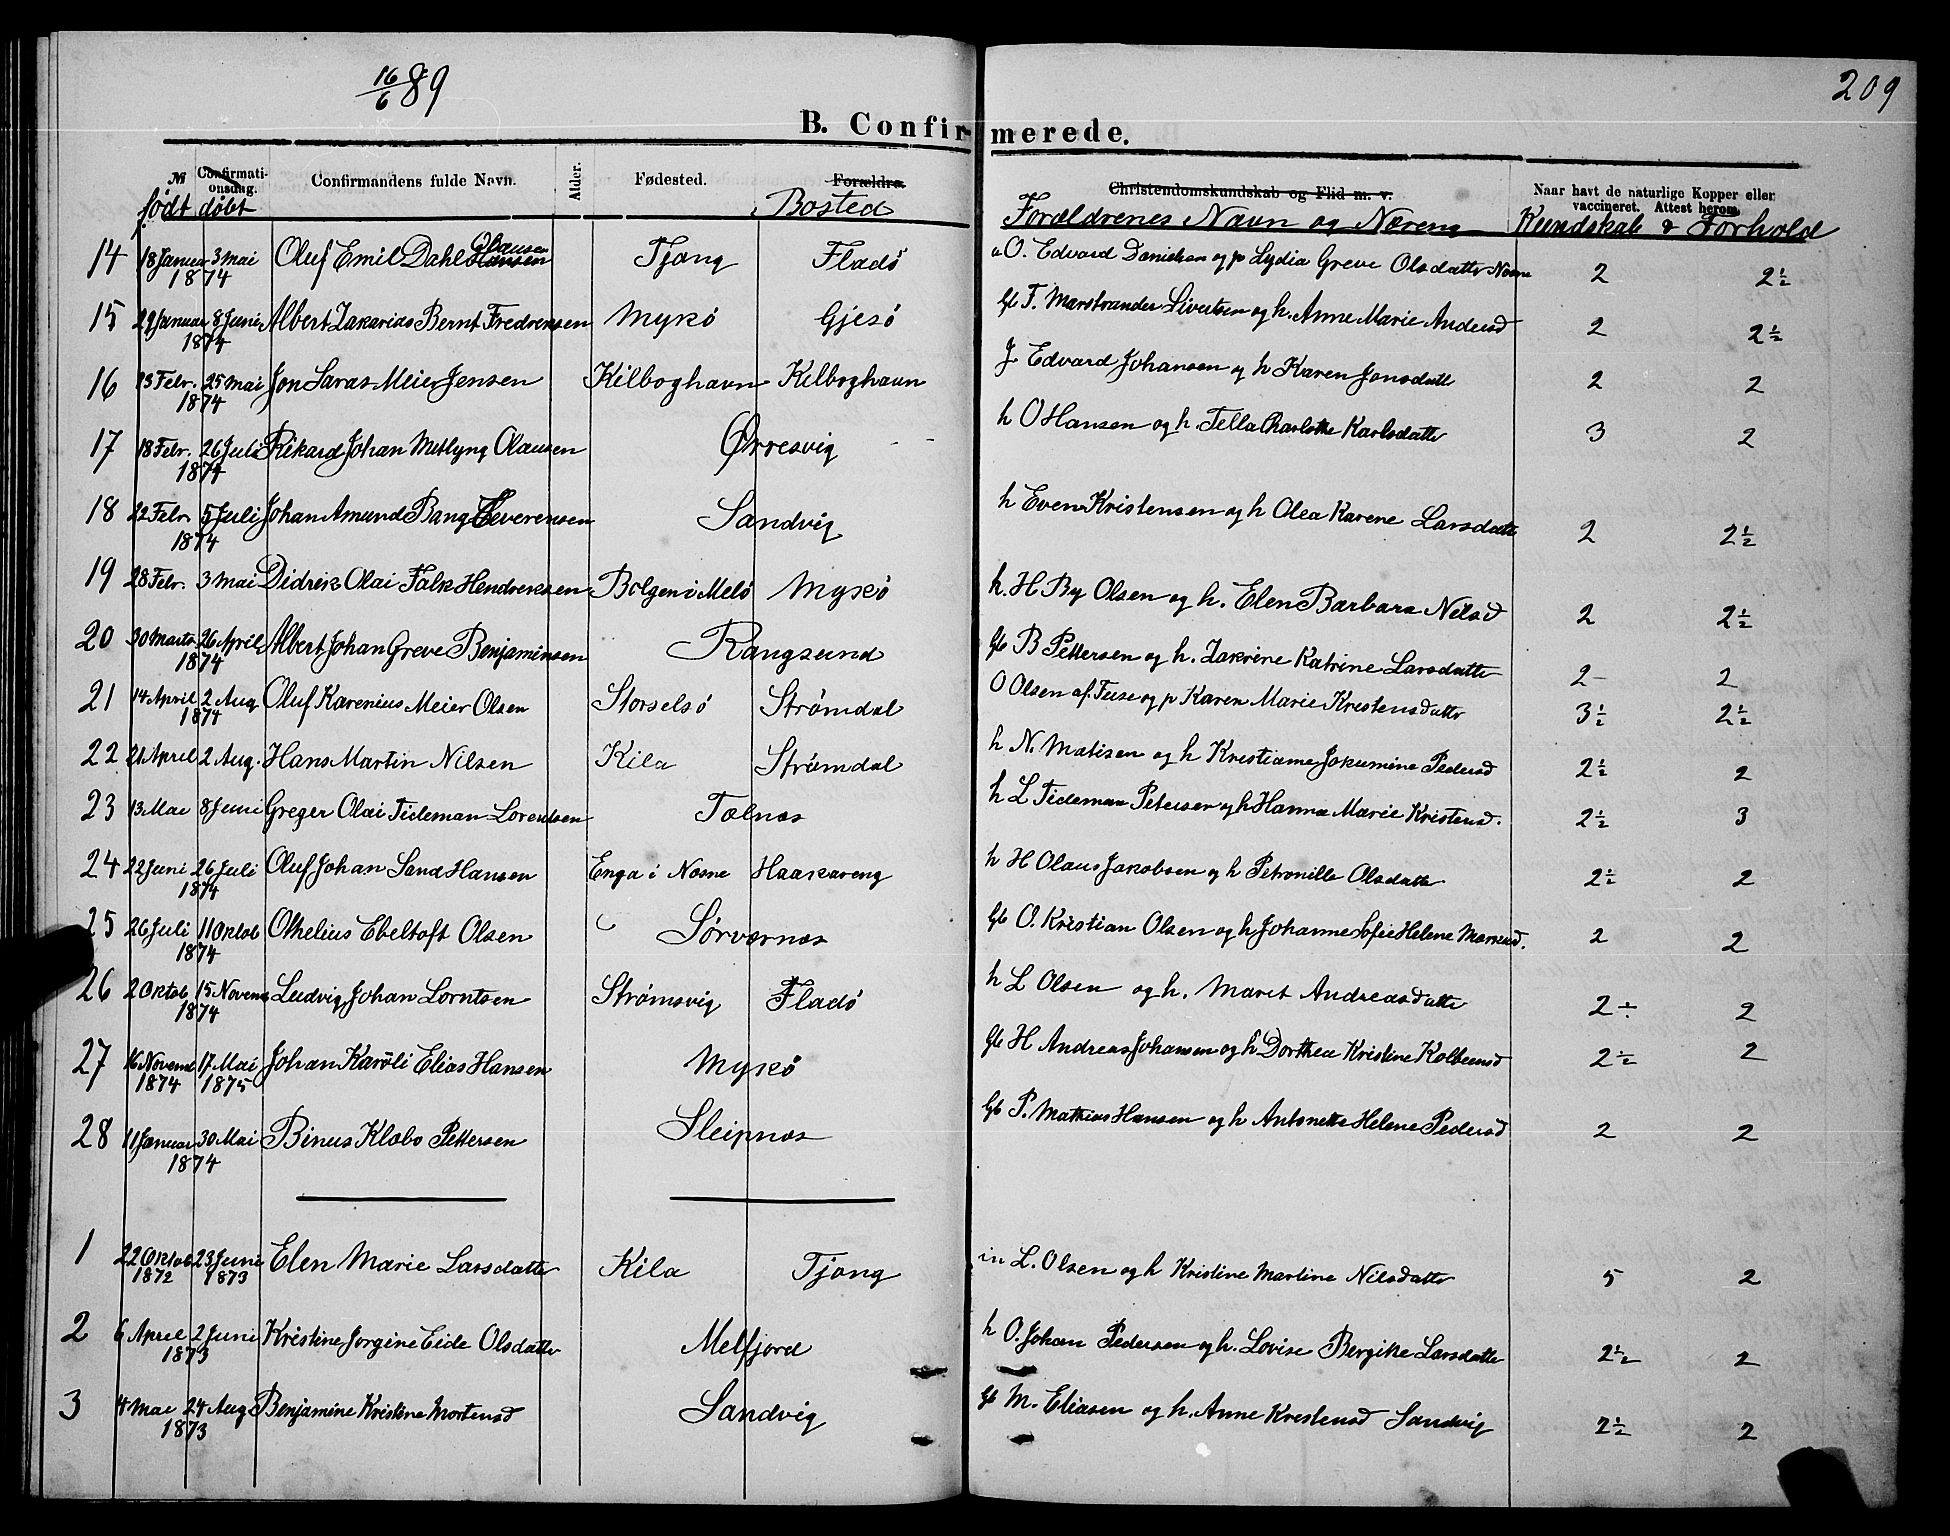 16/6 89
209
B. Confirmerede.
№ Confirmationsdag. Confirmandens fulde Navn. Alder. Fødested. Forældre Christendomskundskab og Flid m. v. Naar havt de naturlige Kopper eller vaccineret. Attest herom
født døbt Bosted Forældrenes Navn og Næring Kundskab & Forhold
14 18 Januar 3 Mai 1874 Oluf Emil Dahl Hansen Olausen Tjong Fladö O. Edvard Danielsen og p Lydia Greve Olsdatter Nesne 2 2½
15 29 Januar 8 Juni 1874 Albert Zakarias Bernt Fredreksen Mykö Gjesö Gb F. Marstrander Sivertsen og h. Anne Marie Andersd 2 2½
16 13 Febr. 25 Mai 1874 Jon Saras Meier Jensen Kilboghavn Kilboghavn J. Edvard Johansen og h Karen Jonsdatt 2 2
17 18 Febr. 26 Juli 1874 Rikard Johan Metlyng Olausen Ørresvig h O Hansen og h. Tella Charlotte Karlsdatter 3 2
18 22 Febr. 5 Juli 1874 Johan Amund Bang Everensen Sandvig h Even Kristensen og h Olea Karene Larsdatter 2 2½
19 28 Febr. 3 Mai Didrik Olai Falk Hendreksen Bolgen i Melö Myskö h. H By Olsen og h. Elen Barbara Nelsd 2 2½
20 30 Marts 26 April 1874 Albert Johan Greve Benjaminsen Rangsund Gb B Pettersen og h. Zakrine Katrine Larsdatter 2 2
21 14 April 2 Aug 1874 Oluf Karenius Meier Olsen Storselsö Strömdal O Olsen af Fuse og p Karen Marie Kristensdatter 3½ 2½
22 21 April 2 Aug. Hans Martin Nilsen Kila Strömdal h N. Matisen og h Kristianne Jokumine Pedersd 2½ 2
23 13 Mai 8 Juni Greger Olai Tideman Lorentsen Tælnes h L Tideman Petersen og h Hanna Marie Kristensd. 2½ 3
24 22 Juni 26 Juli 1874 Oluf Johan Sand Hansen Enga i Nesne Haakareng h H Olaus Jakobsen og h Petronille Olsdatter 2½ 2
25 26 Juli 11 Oktob 1874 Othelius Ebeltoft Olsen Sörvernes Gb O. Kristian Olsen og h Johanne Sofie Helene 2 2
26 2 Oktob 15 Novemb 1874 Ludvig Johan Lorntsen Strömsvig Fladö h L Olsen og h. Maret Andreasdatter 2 ÷ 2
27 16 Novemb 1874 17 Mai 1875 Johan Karöli Elias Hansen Myskö Gb H Andreas Johansen og h Dorthea Kristine Kolbensd 2½ 2
28 11 Januar 30 Mai 1874 Binus Klæbo Pettersen Sleipnes Gb P. Mathias Hansen og h Antonette Helene Pedersd 2 2
1 22 Oktob 1872 23 Juni 1873 Elen Marie Larsdatter Kila Tjong in L. Olsen og h Kristine Martine Nilsdatter 5 2
2 6 April 2 Juni 1873 Kristine Jorgine Eide Olsdatter Melfjord h O. Johan Pedersen og h. Lovise Bergitte Larsdatter 2½ 2
3 4 Mai 24 Aug 1873 Benjamine Kristine Mortensd Sandvig Gb M. Eliasen og h. Anne Kristensd Sandvig 2½ 2